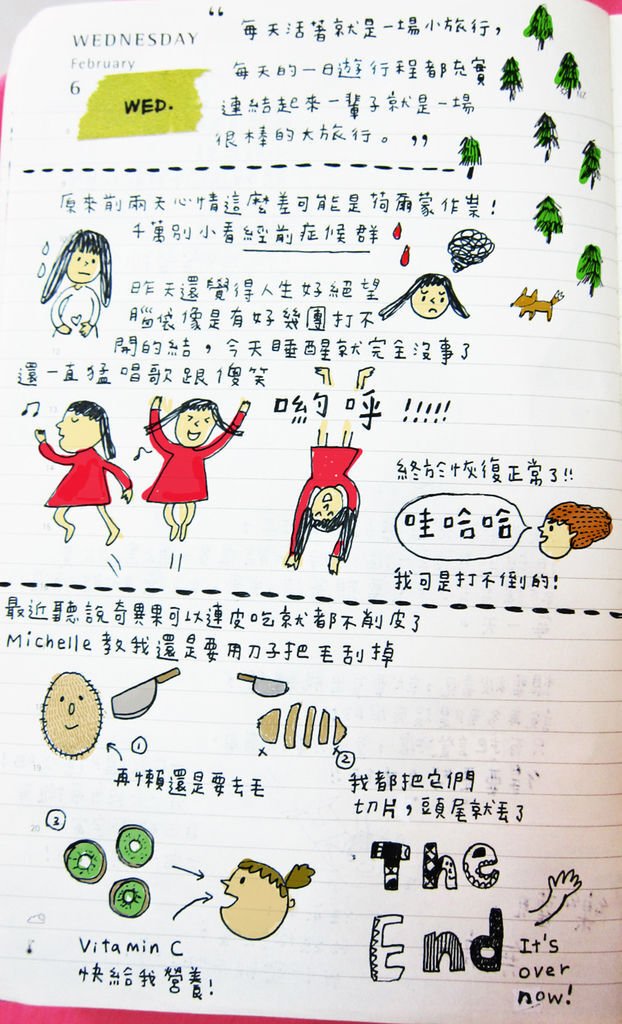 WEDNESDAY
February
6
WED.
“ 每天活著就是一場小旅行,
每天的一日遊行程都充實
連結起來一輩子就是一場
很棒的大旅行。 ”
原來前兩天心情這麼差可能是荷爾蒙作祟!
千萬別小看經前症候群
昨天還覺得人生好絕望
腦袋像是有好幾團打不
開的結,今天睡醒就完全沒事了
還一直猛唱歌跟傻笑
喲呼!!!!!
終於恢復正常了!!
哇哈哈
我可是打不倒的!
最近聽說奇異果可以連皮吃就都不削皮了
Michelle 教我還是要用刀子把毛刮掉
①
再懶還是要去毛
②
我都把它們
切片,頭尾就丟了
③
Vitamin C
快給我營養!
The
End
It's
over
now!